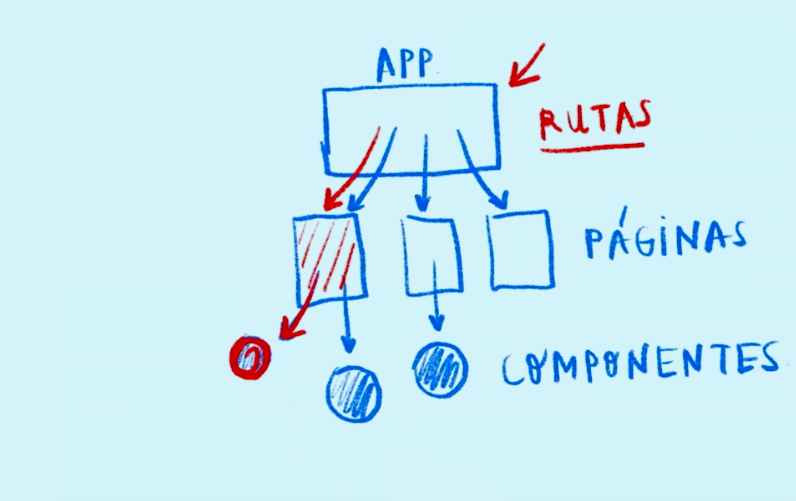 APP
RUTAS
PÁGINAS
COMPONENTES